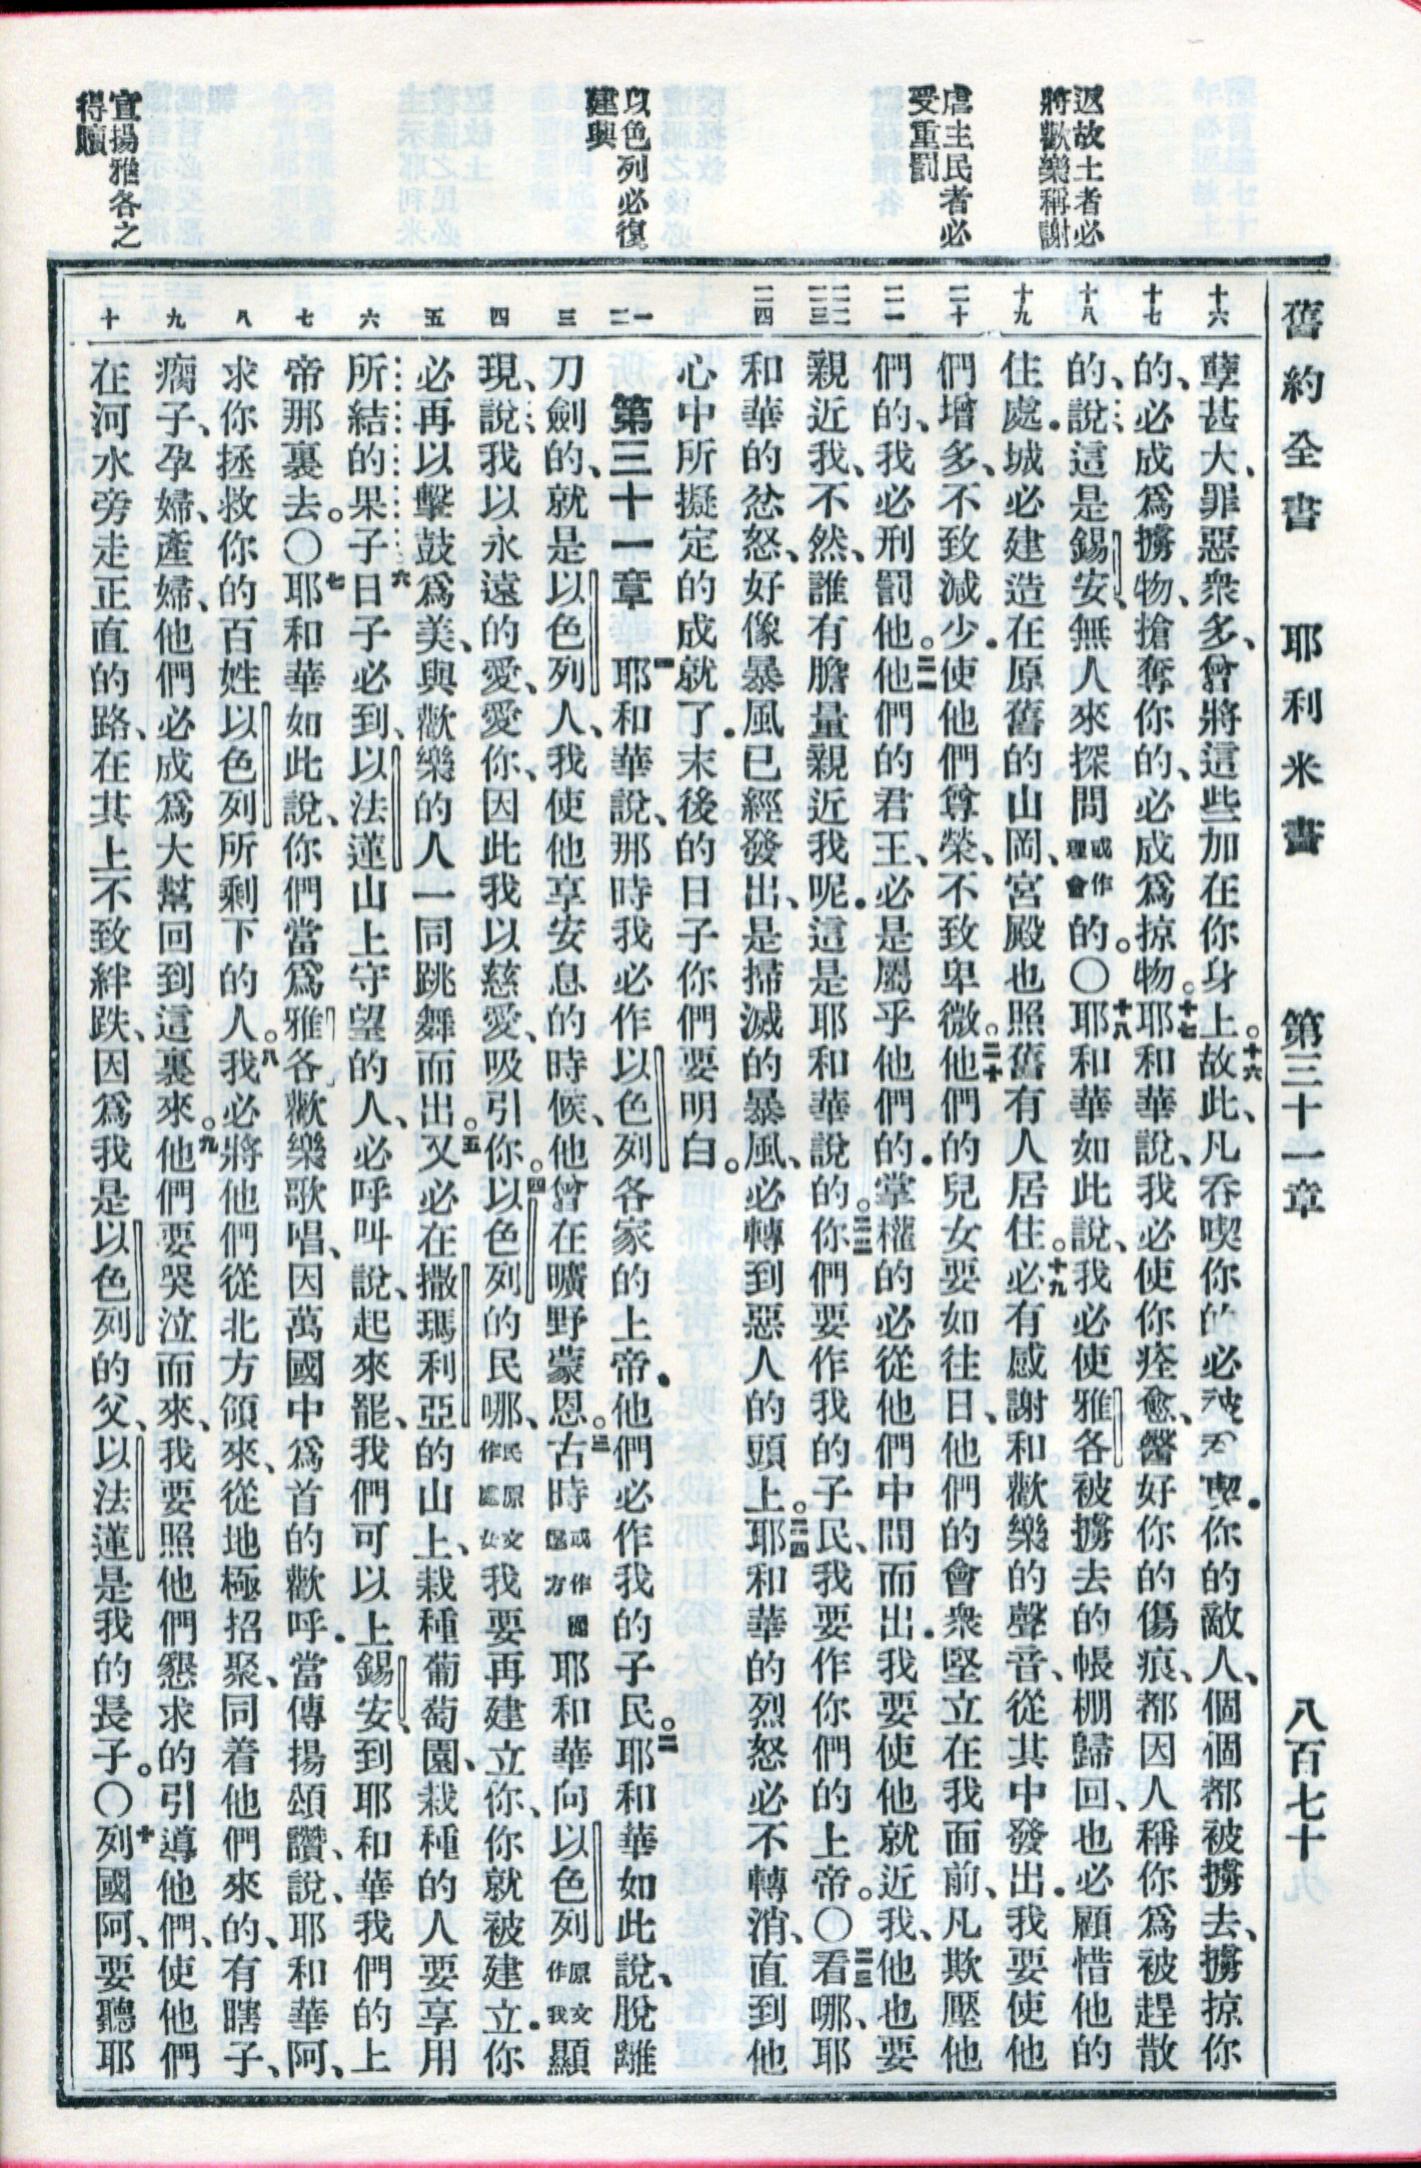 舊約全書 耶利米書 第三十一章 八百七十
返故土者必
將歡樂稱謝
虐主民者必
受重罰
以色列必復
建與
宣揚雅各之
得贖
十六 十七 十八 十九 二十 二一 二二 二三 二四 一 二 三 四 五 六 七 八 九 十
孽甚大、罪惡衆多、曾將這些加在你身上。十六故此、凡吞喫你的必被吞喫．你的敵人、個個都被擄去、擄掠你
的、必成爲擄物、搶奪你的、必成爲掠物。十七耶和華說、我必使你痊愈、醫好你的傷痕、都因人稱你爲被趕散
的、說這是錫安、無人來探問或作理會的。〇十八耶和華如此說、我必使雅各被擄去的帳棚歸回、也必顧惜他的
住處．城必建造在原舊的山岡、宮殿也照舊有人居住。十九必有感謝和歡樂的聲音、從其中發出．我要使他
們增多、不致減少．使他們尊榮、不致卑微。二十他們的兒女要如往日、他們的會衆堅立在我面前、凡欺壓他
們的、我必刑罰他。二一他們的君王、必是屬乎他們的．掌權的必從他們中間而出．我要使他就近我、他也要
親近我、不然、誰有膽量親近我呢．這是耶和華說的。二二你們要作我的子民、我要作你們的上帝。〇二三看哪、耶
和華的忿怒、好像暴風已經發出、是掃滅的暴風、必轉到惡人的頭上。二四耶和華的烈怒必不轉消、直到他
心中所擬定的成就了．末後的日子你們要明白。
第三十一章 一耶和華說、那時我必作以色列各家的上帝．他們必作我的子民。二耶和華如此說、脫離
刀劍的、就是以色列人、我使他享安息的時候、他曾在曠野蒙恩。三古時或作從遠方耶和華向以色列原文作我顯
現、說、我以永遠的愛、愛你、因此我以慈愛、吸引你。四以色列的民哪、民原文作處女我要再建立你、你就被建立．你
必再以擊鼓爲美、與歡樂的人一同跳舞而出。五又必在撒瑪利亞的山上、栽種葡萄園、栽種的人要享用
所結的果子。六日子必到、以法蓮山上守望的人、必呼叫說、起來罷、我們可以上錫安、到耶和華我們的上
帝那裏去。〇七耶和華如此說、你們當爲雅各歡樂歌唱、因萬國中爲首的歡呼．當傳揚頌讚說、耶和華阿、
求你拯救你的百姓以色列所剩下的人。八我必將他們從北方領來、從地極招聚、同着他們來的、有瞎子、
瘸子、孕婦、產婦、他們必成爲大幫回到這裏來。九他們要哭泣而來、我要照他們懇求的引導他們、使他們
在河水旁走正直的路、在其上不致絆跌、因爲我是以色列的父、以法蓮是我的長子。〇十列國阿、要聽耶